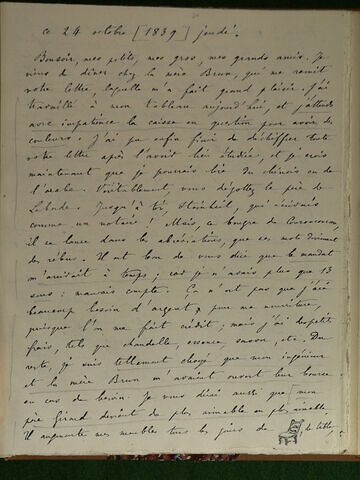 ce 24 octobre [1839] jeudi.
Bonsoir, mes petits, mes gros, mes grands amis. Je
viens de dîner chez la mère Brun, qui me remit
votre lettre, laquelle m'a fait grand plaisir. J'ai
travaillé à mon tableau aujourd'hui, et j'attends
avec impatience la caisse en question pour avoir des
couleurs. J'ai pu enfin finir de déchiffrer toute
votre lettre après l'avoir bien étudiée, et je crois
maintenant que je pourrais lire du chinois ou de
l'arabe. Véritablement, vous dégotez le père de
Lalande. Jusqu'à toi, Steinheil, qui écrivais
comme un notaire! Mais, ce bougre de
il se lance dans les abréviations, que ses mots deviennent
des rébus. Il est bon de vous dire que le mandat
m'arrivait à temps; car je n'avais plus que 13
sous: mauvais compte. Ça n'est pas que j'aie
beaucoup besoin d'argent, pour ma nourriture,
puisque l'on me fait crédit; mais j'ai des petits
frais, tels que chandelle, essence, savon, etc. Du
reste, je suis tellement choyé que mon ingénieur
et la mère Brun m'avaient ouvert leur bourse
en cas de besoin. Je vous dirai aussi que mon
père Giraud devient de plus aimable en plus aimable.
Il augmente mes meubles tous les jours de de tables,